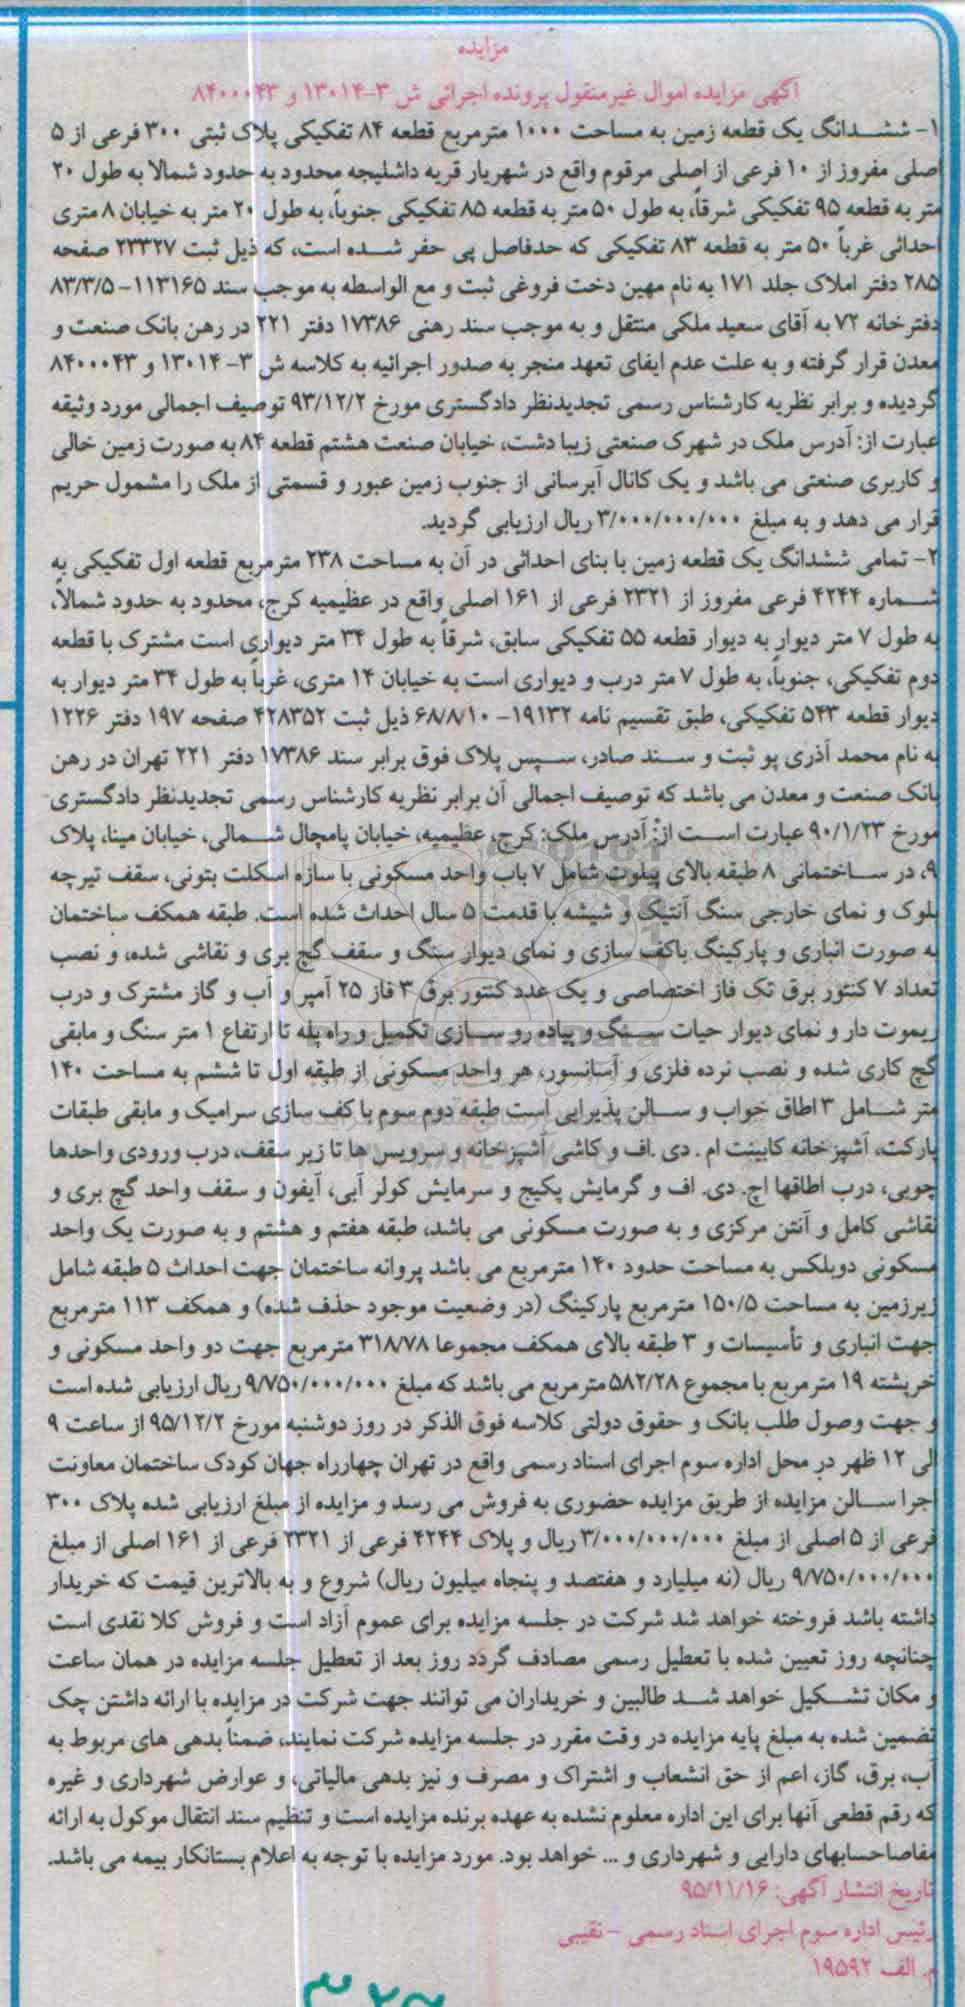 مزایده
آگهی مزایده اموال غیرمنقول پرونده اجرائی ش ۳-۱۳۰۱۴ و ۸۴۰۰۰۴۳
۱- ششدانگ یک قطعه زمین به مساحت ۱۰۰۰ مترمربع قطعه ۸۴ تفکیکی پلاک ثبتی ۳۰۰ فرعی از ۵
اصلی مفروز از ۱۰ فرعی از اصلی مرقوم واقع در شهریار قریه داشلیجه محدود به حدود شمالا به طول ۲۰
متر به قطعه ۹۵ تفکیکی شرقاً، به طول ۵۰ متر به قطعه ۸۵ تفکیکی جنوباً، به طول ۲۰ متر به خیابان ۸ متری
احداثی غرباً ۵۰ متر به قطعه ۸۳ تفکیکی که حدفاصل پی حفر شده است، که ذیل ثبت ۲۳۳۲۷ صفحه
۲۸۵ دفتر املاک جلد ۱۷۱ به نام مهین دخت فروغی ثبت و مع الواسطه به موجب سند ۱۱۳۱۶۵- ۸۳/۳/۵
دفترخانه ۷۲ به آقای سعید ملکی منتقل و به موجب سند رهنی ۱۷۳۸۶ دفتر ۲۲۱ در رهن بانک صنعت و
معدن قرار گرفته و به علت عدم ایفای تعهد منجر به صدور اجرائیه به کلاسه ش ۳- ۱۳۰۱۴ و ۸۴۰۰۰۴۳
گردیده و برابر نظریه کارشناس رسمی تجدیدنظر دادگستری مورخ ۹۳/۱۲/۲ توصیف اجمالی مورد وثیقه
عبارت از: آدرس ملک در شهرک صنعتی زیبا دشت، خیابان صنعت هشتم قطعه ۸۴ به صورت زمین خالی
و کاربری صنعتی می باشد و یک کانال آبرسانی از جنوب زمین عبور و قسمتی از ملک را مشمول حریم
قرار می دهد و به مبلغ ۳/۰۰۰/۰۰۰/۰۰۰ ریال ارزیابی گردید.
۲- تمامی ششدانگ یک قطعه زمین با بنای احداثی در آن به مساحت ۲۳۸ مترمربع قطعه اول تفکیکی به
شماره ۴۲۴۴ فرعی مفروز از ۲۳۲۱ فرعی از ۱۶۱ اصلی واقع در عظیمیه کرج، محدود به حدود شمالاً،
به طول ۷ متر دیوار به دیوار قطعه ۵۵ تفکیکی سابق، شرقاً به طول ۳۴ متر دیواری است مشترک با قطعه
دوم تفکیکی، جنوباً، به طول ۷ متر درب و دیواری است به خیابان ۱۴ متری، غرباً به طول ۳۴ متر دیوار به
دیوار قطعه ۵۴۳ تفکیکی، طبق تقسیم نامه ۱۹۱۳۲- ۶۸/۸/۱۰ ذیل ثبت ۴۲۸۳۵۲ صفحه ۱۹۷ دفتر ۱۲۲۶
به نام محمد آذری پو ثبت و سند صادر، سپس پلاک فوق برابر سند ۱۷۳۸۶ دفتر ۲۲۱ تهران در رهن
بانک صنعت و معدن می باشد که توصیف اجمالی آن برابر نظریه کارشناس رسمی تجدیدنظر دادگستری
مورخ ۹۰/۱/۲۳ عبارت است از: آدرس ملک: کرج، عظیمیه، خیابان پامچال شمالی، خیابان مینا، پلاک
۹، در ساختمانی ۸ طبقه بالای پیلوت شامل ۷ باب واحد مسکونی با سازه اسکلت بتونی، سقف تیرچه
بلوک و نمای خارجی سنگ آنتیک و شیشه با قدمت ۵ سال احداث شده است. طبقه همکف ساختمان
به صورت انباری و پارکینگ باکف سازی و نمای دیوار سنگ و سقف گچ بری و نقاشی شده، و نصب
تعداد ۷ کنتور برق تک فاز اختصاصی و یک عدد کنتور برق ۳ فاز ۲۵ آمپر و آب و گاز مشترک و درب
ریموت دار و نمای دیوار حیات سنگ و پیاده رو سازی تکمیل و راه پله تا ارتفاع ۱ متر سنگ و مابقی
گچ کاری شده و نصب نرده فلزی و آسانسور، هر واحد مسکونی از طبقه اول تا ششم به مساحت ۱۴۰
متر شامل ۳ اطاق خواب و سالن پذیرایی است طبقه دوم سوم با کف سازی سرامیک و مابقی طبقات
پارکت، آشپزخانه کابینت ام . دی .اف و کاشی آشپزخانه و سرویس ها تا زیر سقف، درب ورودی واحدها
چوبی، درب اطاقها اچ. دی. اف و گرمایش پکیج و سرمایش کولر آبی، آیفون و سقف واحد گچ بری و
نقاشی کامل و آنتن مرکزی و به صورت مسکونی می باشد، طبقه هفتم و هشتم و به صورت یک واحد
مسکونی دوبلکس به مساحت حدود ۱۴۰ مترمربع می باشد پروانه ساختمان جهت احداث ۵ طبقه شامل
زیرزمین به مساحت ۱۵۰/۵ مترمربع پارکینگ (در وضعیت موجود حذف شده) و همکف ۱۱۳ مترمربع
جهت انباری و تأسیسات و ۳ طبقه بالای همکف مجموعا ۳۱۸/۷۸ مترمربع جهت دو واحد مسکونی و
خرپشته ۱۹ مترمربع با مجموع ۵۸۲/۲۸ مترمربع می باشد که مبلغ ۹/۷۵۰/۰۰۰/۰۰۰ ریال ارزیابی شده است
و جهت وصول طلب بانک و حقوق دولتی کلاسه فوق الذکر در روز دوشنبه مورخ ۹۵/۱۲/۲ از ساعت ۹
الی ۱۲ ظهر در محل اداره سوم اجرای اسناد رسمی واقع در تهران چهارراه جهان کودک ساختمان معاونت
اجرا سالن مزایده از طریق مزایده حضوری به فروش می رسد و مزایده از مبلغ ارزیابی شده پلاک ۳۰۰
فرعی از ۵ اصلی از مبلغ ۳/۰۰۰/۰۰۰/۰۰۰ ریال و پلاک ۴۲۴۴ فرعی از ۲۳۲۱ فرعی از ۱۶۱ اصلی از مبلغ
۹/۷۵۰/۰۰۰/۰۰۰ ریال (نه میلیارد و هفتصد و پنجاه میلیون ریال) شروع و به بالاترین قیمت که خریدار
داشته باشد فروخته خواهد شد شرکت در جلسه مزایده برای عموم آزاد است و فروش کلا نقدی است
چنانچه روز تعیین شده با تعطیل رسمی مصادف گردد روز بعد از تعطیل جلسه مزایده در همان ساعت
و مکان تشکیل خواهد شد طالبین و خریداران می توانند جهت شرکت در مزایده با ارائه داشتن چک
تضمین شده به مبلغ پایه مزایده در وقت مقرر در جلسه مزایده شرکت نمایند، ضمناً بدهی های مربوط به
آب، برق، گاز، اعم از حق انشعاب و اشتراک و مصرف و نیز بدهی مالیاتی، و عوارض شهرداری و غیره
که رقم قطعی آنها برای این اداره معلوم نشده به عهده برنده مزایده است و تنظیم سند انتقال موکول به ارائه
مفاصاحسابهای دارایی و شهرداری و ... خواهد بود. مورد مزایده با توجه به اعلام بستانکار بیمه می باشد.
تاریخ انتشار آگهی: ۹۵/۱۱/۱۶
رئیس اداره سوم اجرای اسناد رسمی - نقیبی
م. الف ۱۹۵۹۲